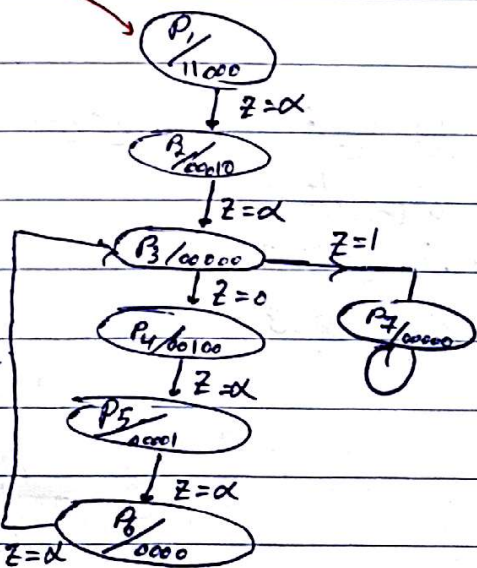 P1/
11000
Z=α
P2/00010
Z=α
P3/00000
Z=1
Z=0
P4/00100
P7/00000
Z=α
P5/
00001
Z=α
P6/
0000
Z=α